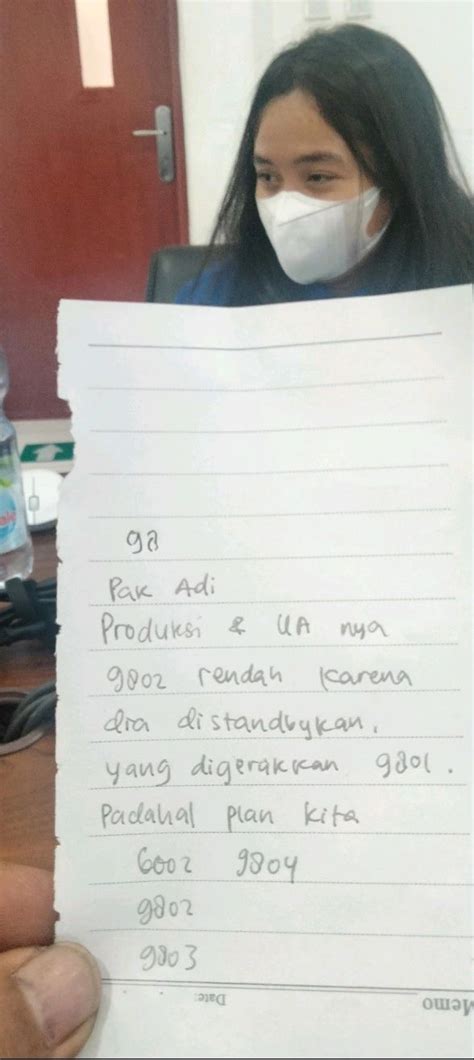 98
Pak Adi
Produksi & UA nya
9802 rendah karena
dia distandbykan,
yang digerakkan 9801.
Padahal plan kita
6002 9804
9802
9803
Date:
Memo